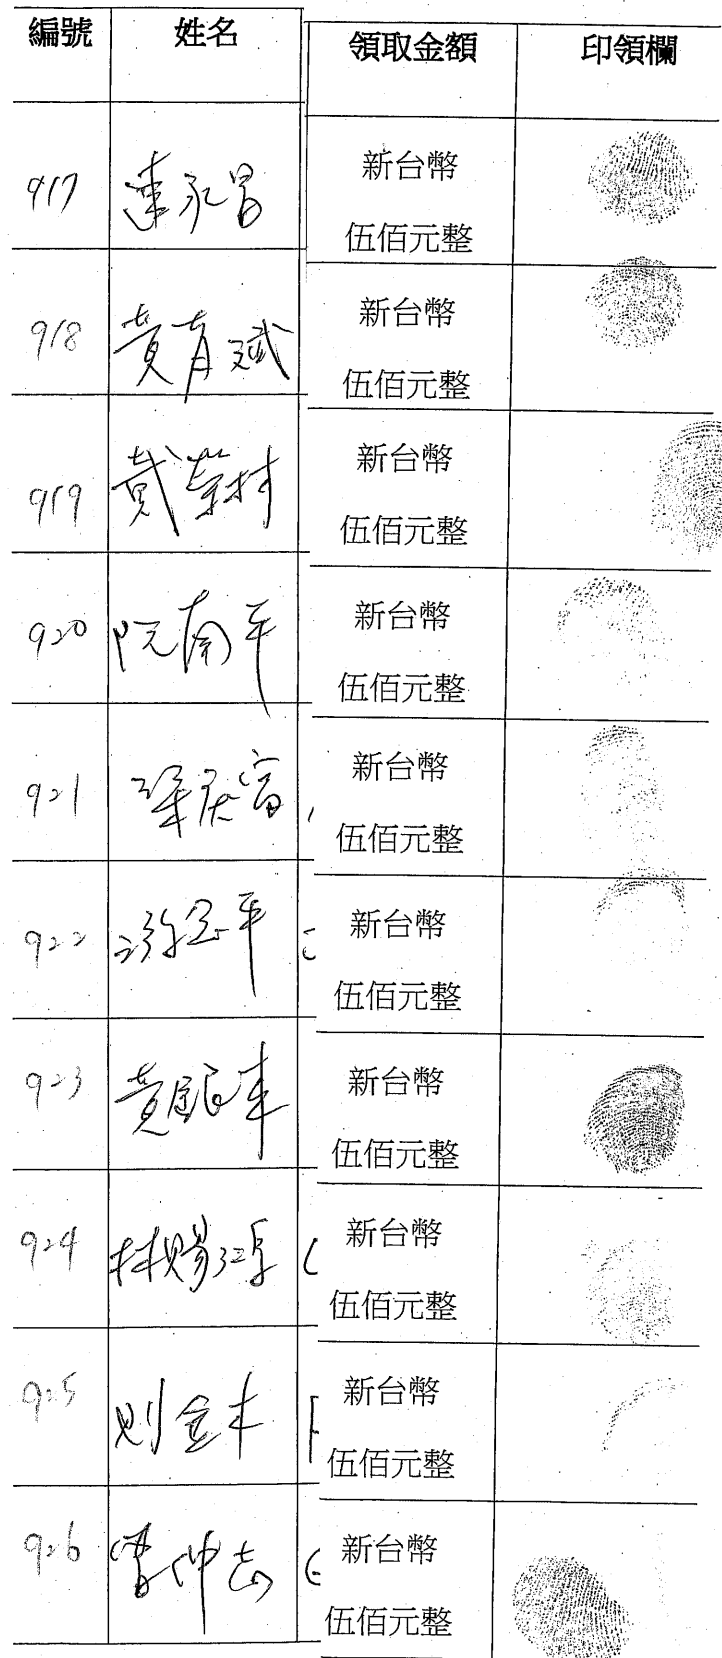 編號 姓名 領取金額 印領欄
917 連永昌 新台幣
伍佰元整
918 黃有斌 新台幣
伍佰元整
919 戴榮村 新台幣
伍佰元整
920 阮南平 新台幣
伍佰元整
921 富 新台幣
伍佰元整
922 游 平 新台幣
伍佰元整
923 黃 新台幣
伍佰元整
924 林賜 新台幣
伍佰元整
925 金本 新台幣
伍佰元整
926 曾仲志 新台幣
伍佰元整